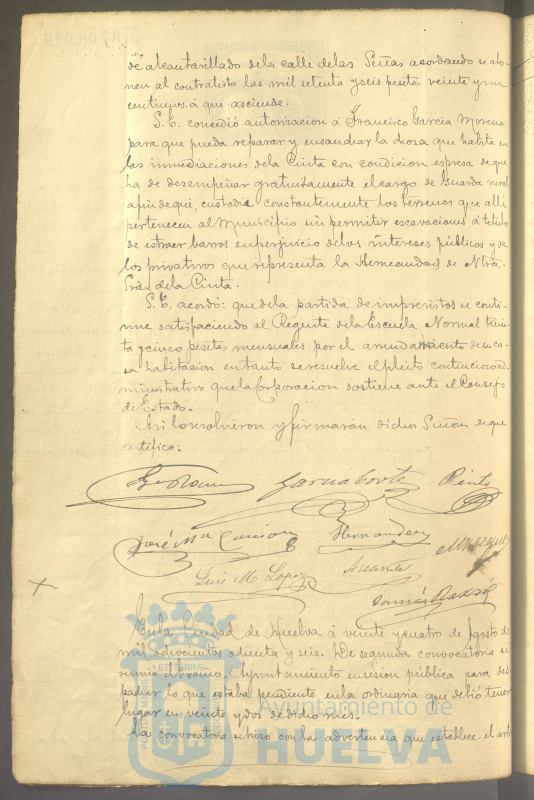 de alcantarillado de la calle de las Señas acordando se abo-
nen al contratista las mil setenta y seis pesetas, veinte y un
centimos á que asciende.
S. E. concedió autorizacion á Francisco Garcia Moreno
para que pueda reparar y ensanchar la choza que habita en
las inmediaciones de la Cinta con condicion espresa de que
ha de desempeñar gratuitamente el cargo de Guarda rural
a fin de que custodie constantemente los terrenos que alli
pertenecen al Municipio sin permitir escavaciones á titulo
de estraer barros en perjuicio de los intereses públicos y de
los privativos que representa la Hermandad de Ntra.
Sra. de la Cinta.
S. E. acordó: que de la partida de imprevistos se conti-
nue satisfaciendo al Regente de la Escuela Normal trein-
ta y cinco pesetas mensuales por el arrendamiento de su ca-
sa habitacion en tanto se resuelve el pleito contencioso ad-
ministrativo que la Corporacion sostiene ante el Consejo
de Estado.
Asi lo resolvieron y firmarán dichos Señores de que
certifico:
Garnaborte Pinto
José Ma Hernandez
Luis M. Lopez Alcante
Tomás
En la Ciudad de Huelva á veinte y cuatro de Agosto de
mil ochocientos ochenta y seis. De segunda convocatoria se
reunió el Excmo. Ayuntamiento en sesion pública para des-
pachar lo que estaba pendiente en la ordinaria que debió tener
lugar en veinte y dos de dicho mes.
La convocatoria se hizo con la advertencia que establece el art
Ayuntamiento de
HUELVA